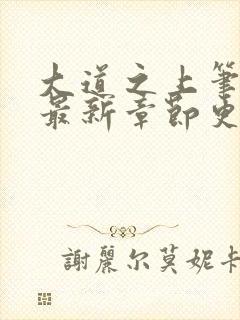 大道之上筆
最新章節史
謝麗尔莫妮卡